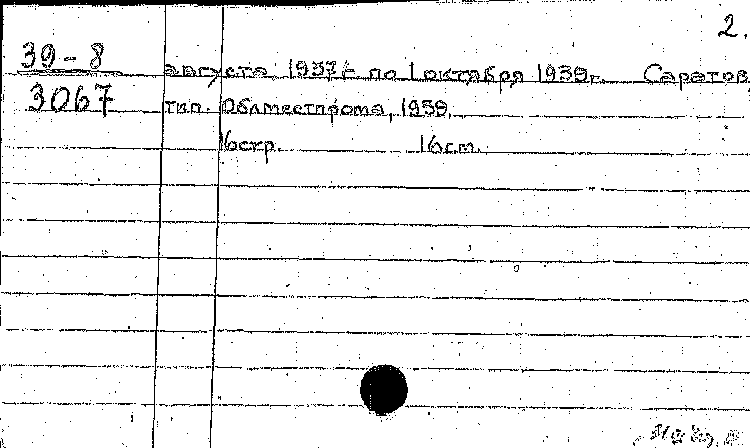 2.
39-8 августа 1937 г. по 1 октября 1939г. Саратов,
3067 тип. Облместпрома, 1939.
16стр. 16см.